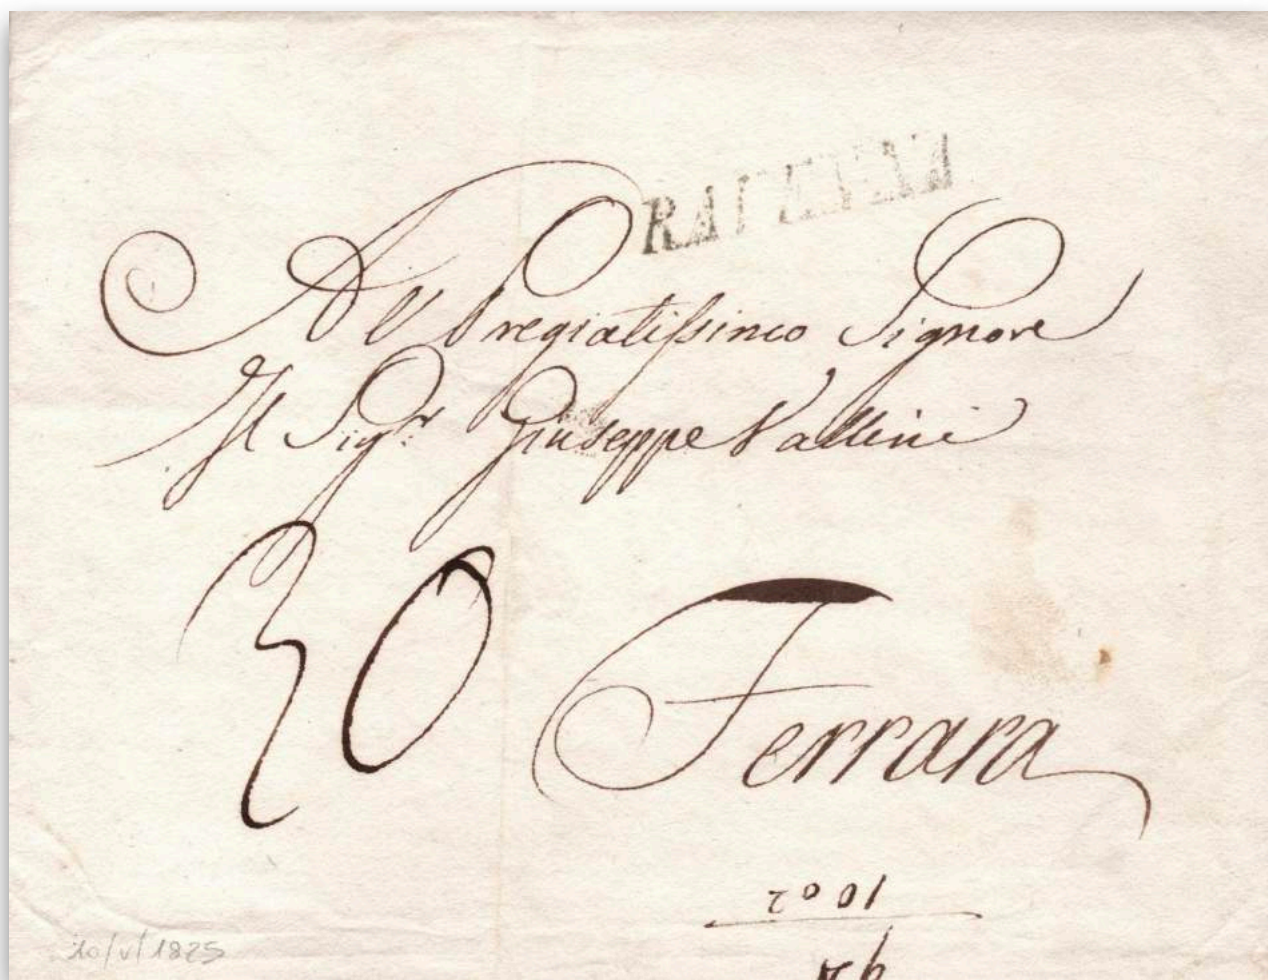 RAVENNA
All Pregiatissimo Signore
Il Sig.r Giuseppe Vallini
30
Ferrara
10/V/1825